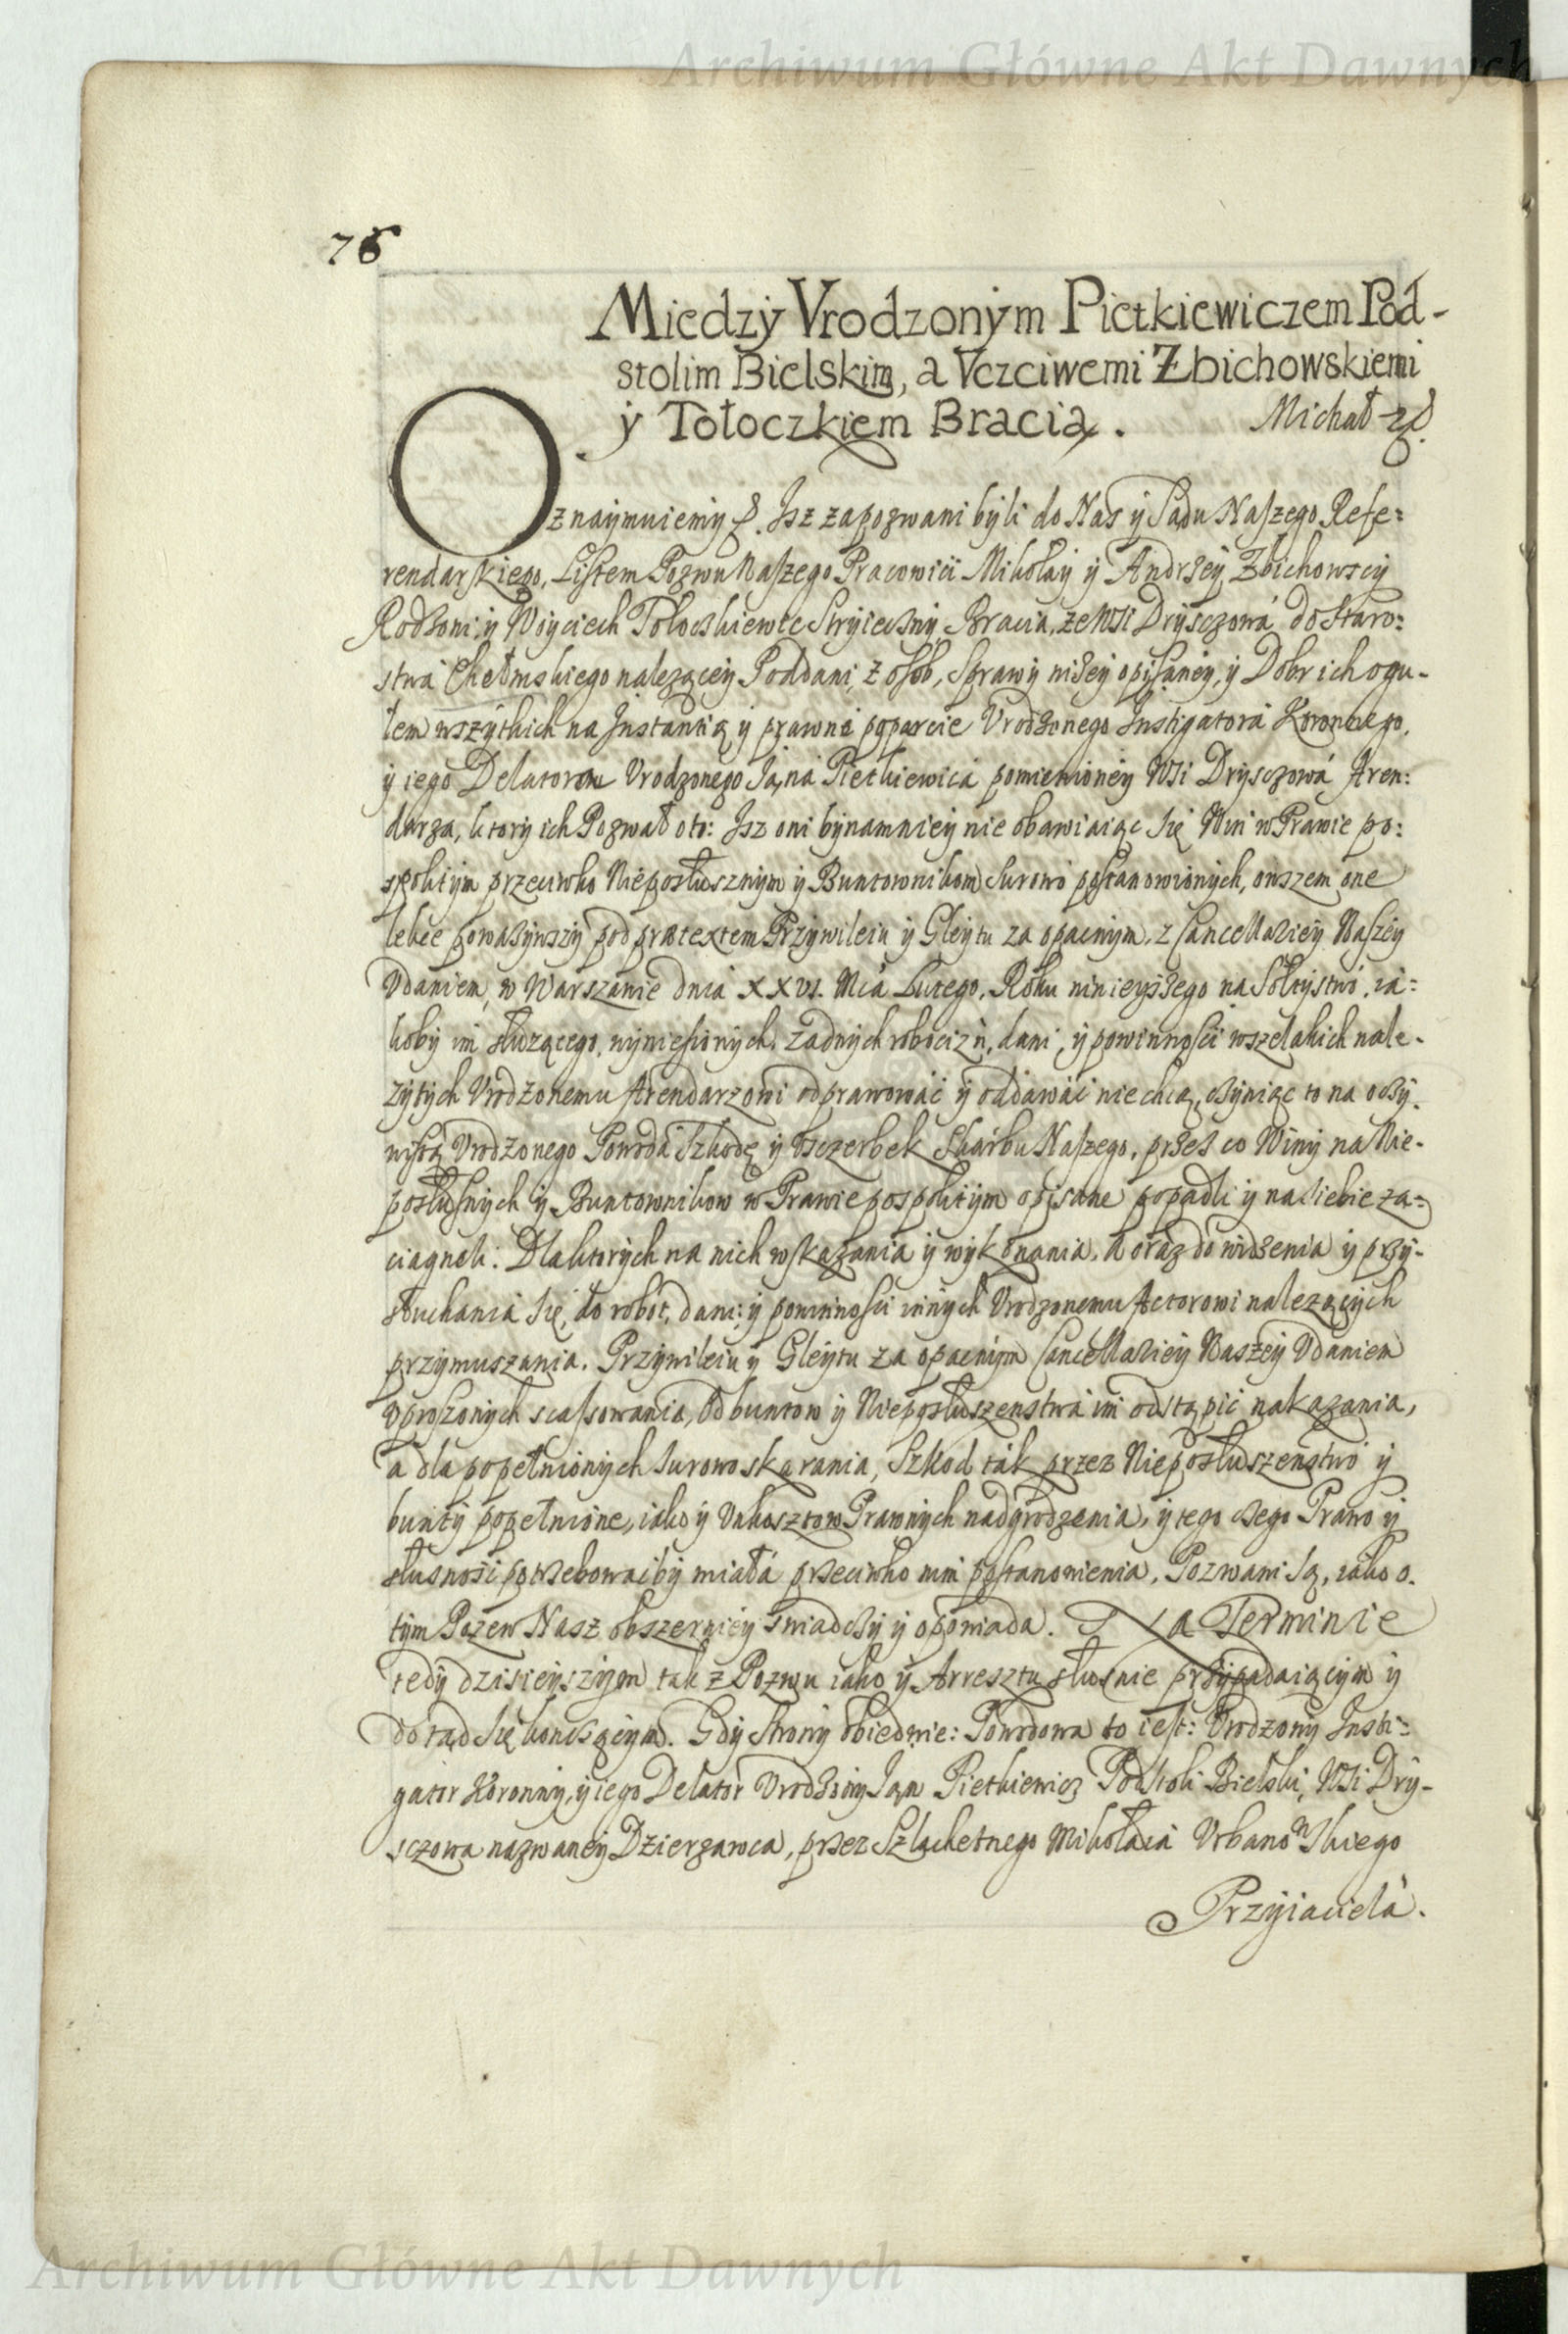 Archiwum Główne Akt Dawnych
76
Między Vrodzonym Pietkiewiczem Pod-
stolim Bielskim, a Vczciwemi Zbichowskiemi
y Tołoczkiem Bracią. Michał
Oznaymuiemy. Isz zapozwani byli do Nas y Sądu Naszego Refe:
rendarskiego, Listem Pozwu Naszego Pracowici Mikołay y Andrzey Zbichowscy
Rodzoni, y Woyciech Tołoczkiewic Stryieczny Bracia, ze Wsi Drysczowá do Staro:
stwá Chełmskiego nalezącey Poddani, z osob, Sprawy niżey opisáney, y Dobr ich ogu-
łem wszytkich na Instantią y prawne poparcie Vrodzonego Instigatorá Koronnego,
y iego Delatora Vrodzonego Jáná Pietkiewicá pomienioney Wsi Drysczowá Aren:
darza, ktory ich Pozwał oto: Isz oni bynamniey nie obawiaiąc się Win w Prawie po:
spolitym przeciwko Nieposłusznym y Buntownikom Surowo postanowionych, owszem one
lekce poważywszy pod prætextem Przywileiu y Gleytu za opacznym z Cancellariey Naszey
Vdaniem, w Warszawie dnia XXVI. Mcá Lutego, Roku ninieyszego na Sołtystwo, iá=
koby im służącego, wyniesionych, żadnych robocizn, dani, y powinności wszelakich nale-
żytych Vrodzonemu Arendarzowi odprawować y oddawać niechcą, czyniąc to na oczy-
wistą Vrodzonego Powodá Szkodę y Vsczerbek Skárbu Naszego, przez co Winy na Nie-
posłusznych y Buntownikow w Prawie pospolitym opisane popadli y na siebie za=
ciągneli: Dla ktorych na nich wskazania y wykonania, a oraz do widzenia y przy-
słuchania się, do robot, dani, y powinności innych Vrodzonemu Actorowi nalezących
przymuszania, Przywileiu y Gleytu za opacznym Cancellariey Naszey Vdaniem
Vproszonych scassowania, Od buntow y Nieposłuszenstwá im odstąpić nakazania,
a dla popełnionych surowo skarania, Szkod ták przez Nieposłuszenstwo y
bunty popełnione, iako y Vnkosztow Prawnych nadgrodzenia, y tego czego Prawo y
słusności potrzebowałyby miałá przeciwko nim postanowienia, Pozwani są, iako o
tym Pozew Nasz obszerniey swiadczy y opowiada. Na Terminie
tedy dzisieyszym tak z Pozwu iako y Arresztu słusnie przypadaiącym y
dotąd się kończącym. Gdy Strony obiedwie: Powodowa to iest: Vrodzony Insti=
gator Koronny, y iego Delator Vrodzony Ján Pietkiewicz Podstoli Bielski, Wsi Dry-
sczowa nazwaney Dzierzawca, przez Szlachetnego Mikołaia Vrbanowskiego
Przyiacielá.
Archiwum Główne Akt Dawnych